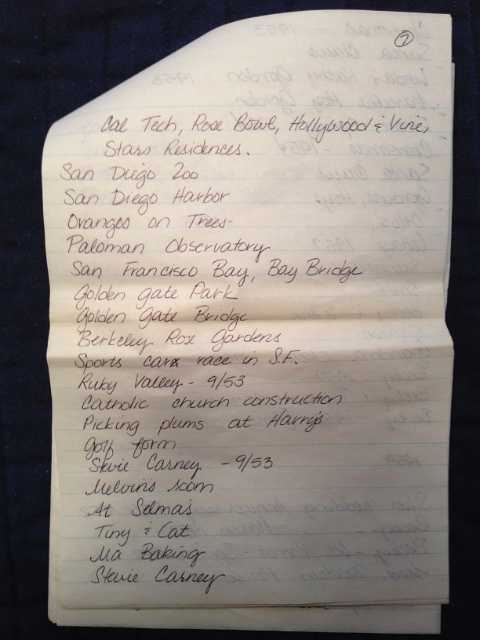 7
Cal Tech, Rose Bowl, Hollywood & Vine,
Stars Residences.
San Diego Zoo
San Diego Harbor
Oranges on Trees-
Paloman Observatory
San Francisco Bay, Bay Bridge
Golden Gate Park
Golden Gate Bridge
Berkeley Rose Gardens
Sports cars race in S.F.
Ruby Valley - 9/53
Catholic church construction
Picking plums at Harry's
Golf form
Stevie Carney - 9/53
Melvins room
At Selmas
Tiny & Cat
Ma Baking
Stevie Carney